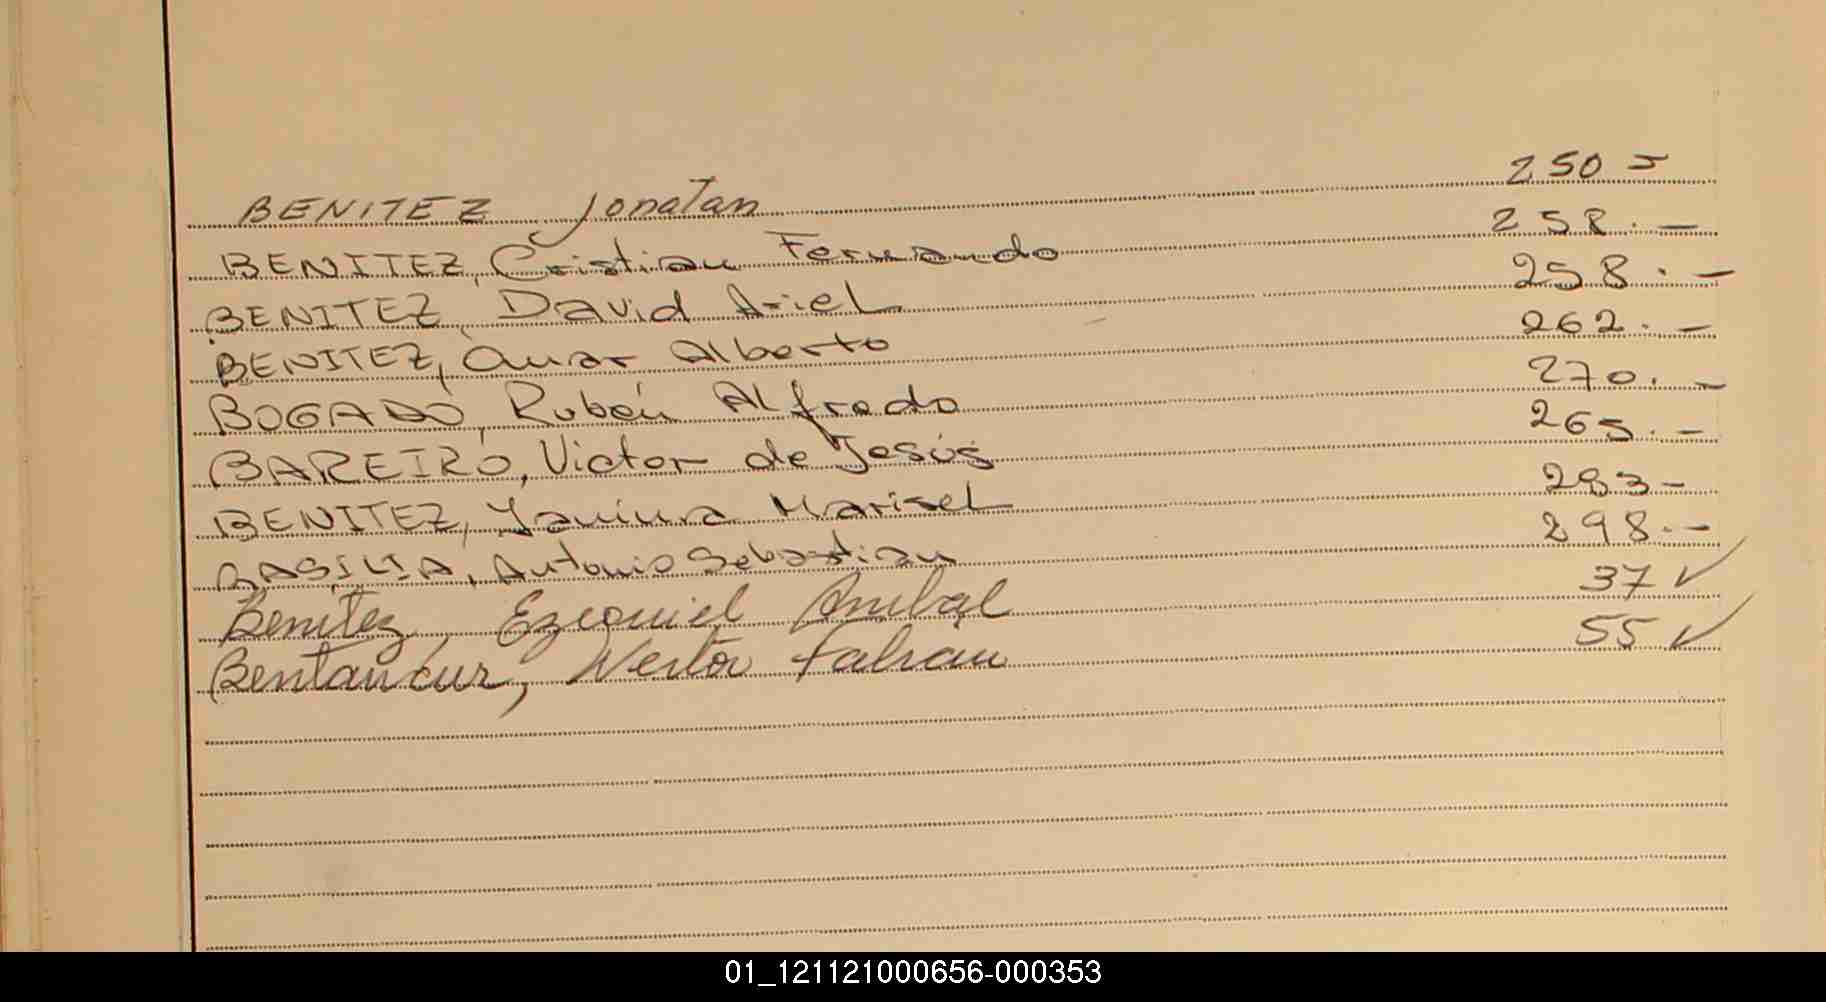 BENITEZ Jonatan 250 =
BENITEZ, Cristian Fernando 258.-
BENITEZ, David Ariel 258.-
BENITEZ, Omar Alberto 262.-
BOGADO, Rubén Alfredo 270.-
BAREIRO, Victor de Jesús 265.-
BENITEZ, Yanina Marisel 283-
BASILIA, Antonio Sebastian 298.-
Benitez, Ezequiel Anibal 37 ✓
Bentancur, Nestor Fabian 55 ✓
01_121121000656-000353